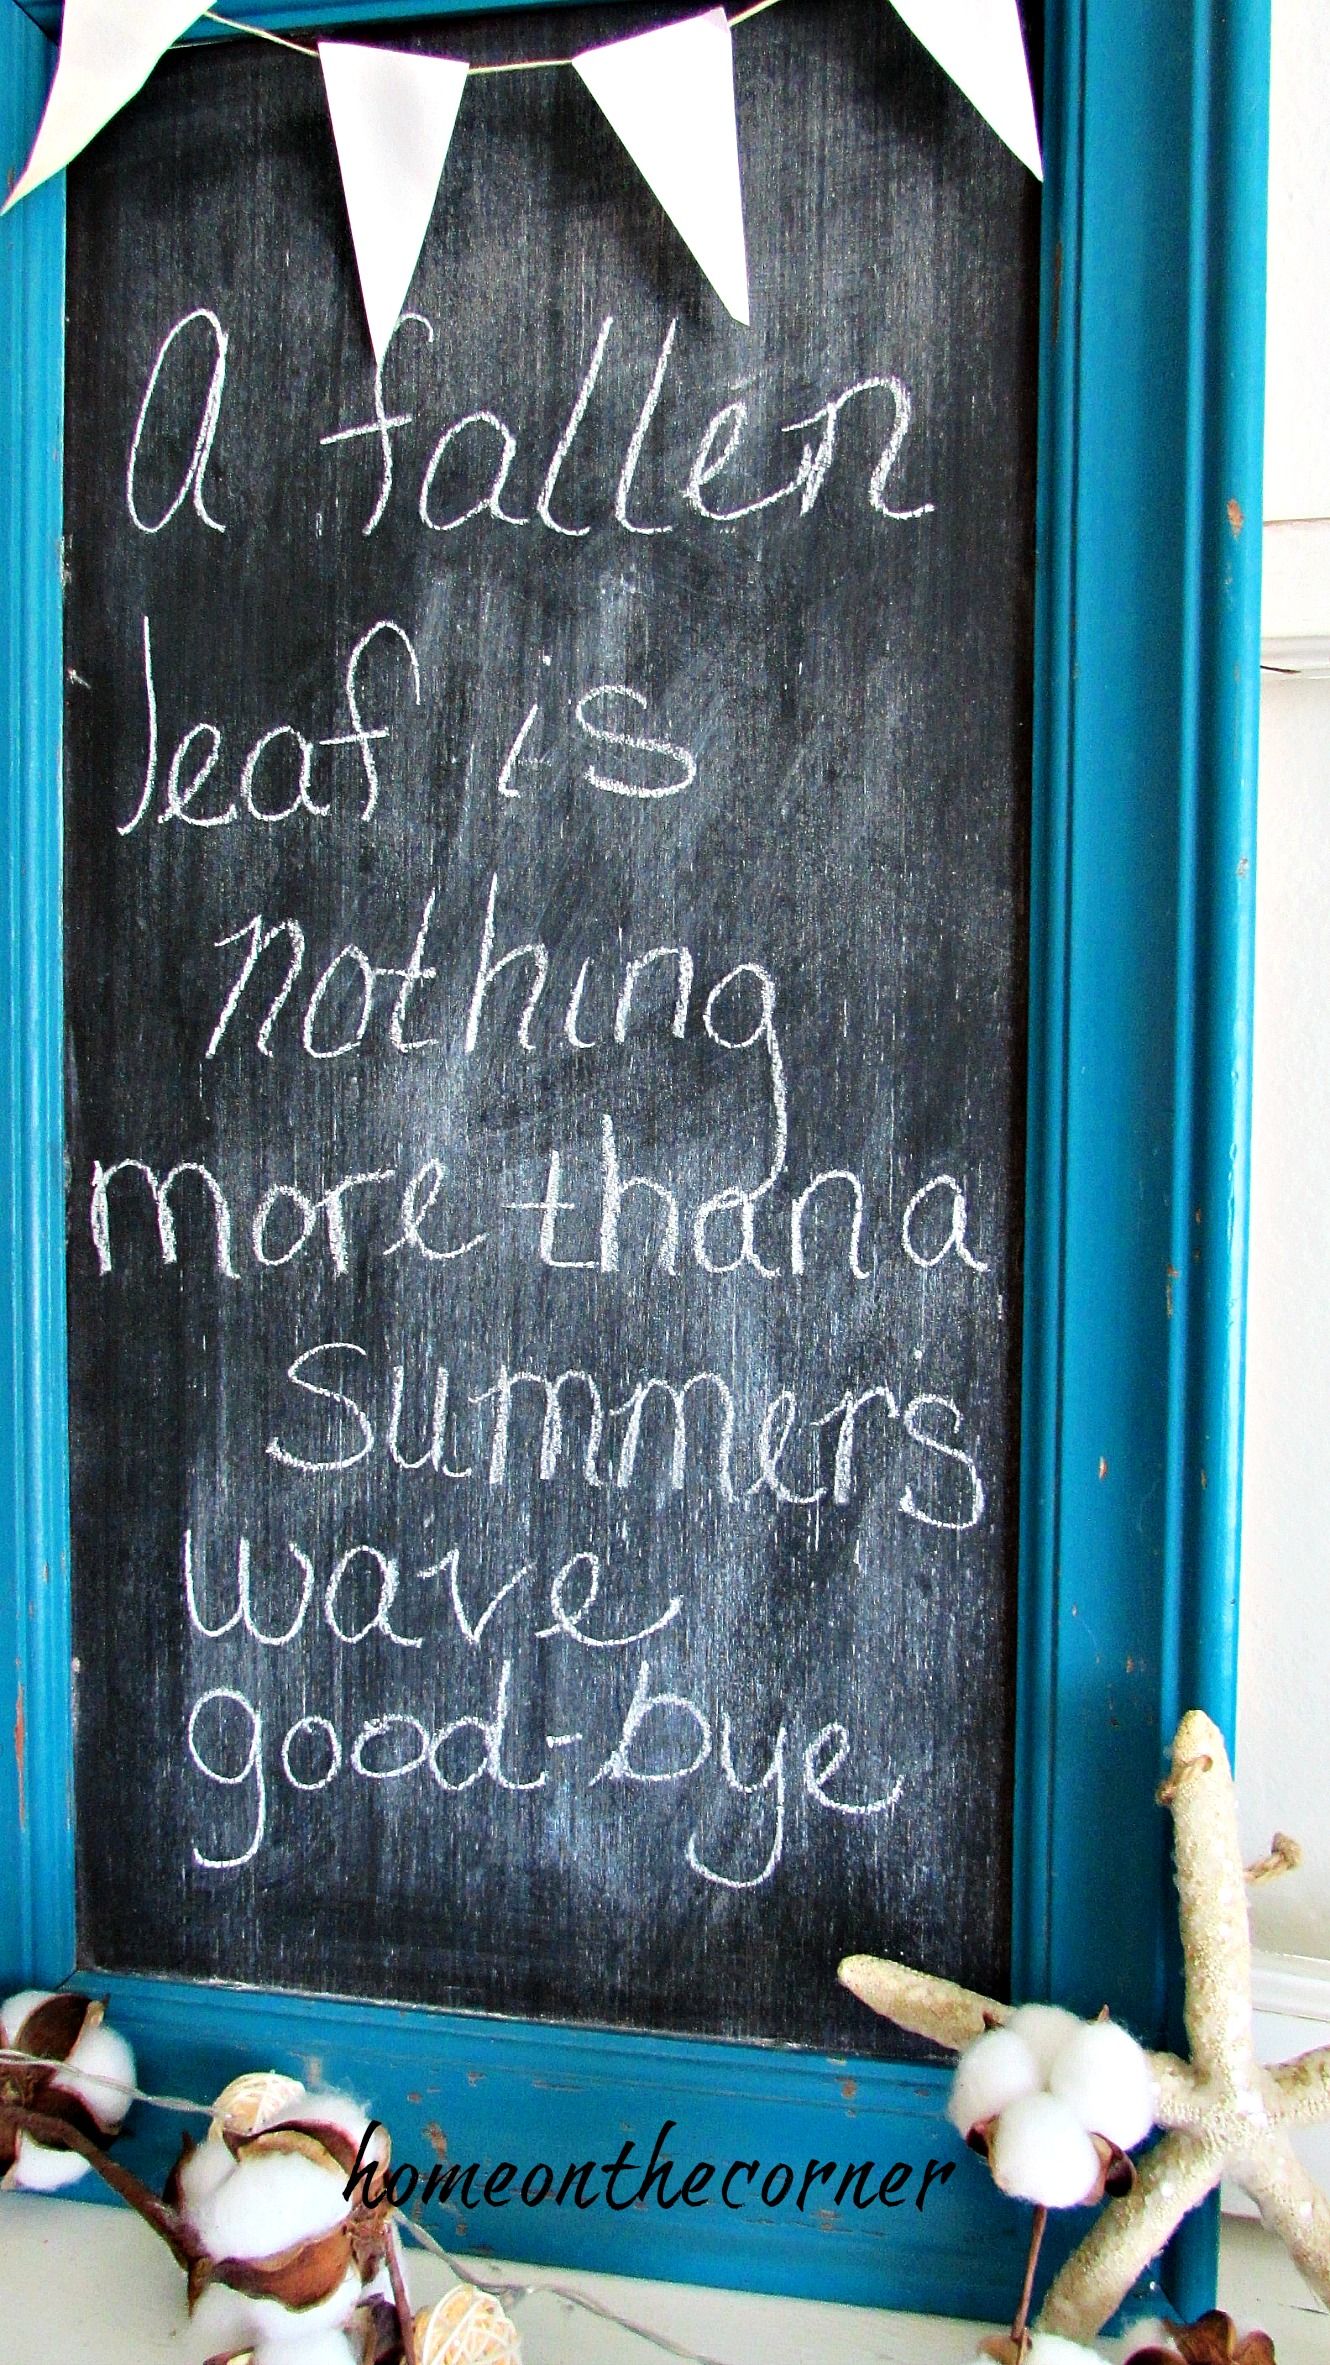 A fallen
leaf is
nothing
more than a
Summer's
wave
good-bye
homeonthecorner